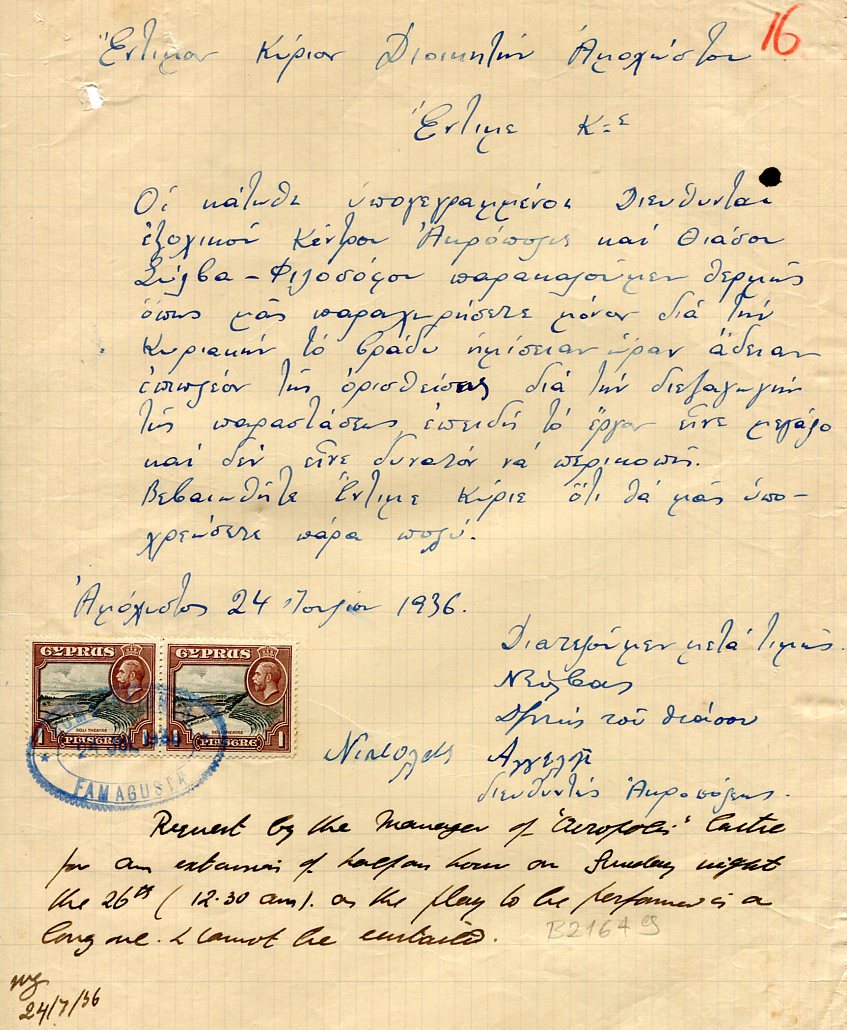 16
Ἔντιμον Κύριον Διοικητὴν Ἀμοχώστου
Ἔντιμε Κ=ε
Οἱ κάτωθι ὑπογεγραμμένοι Διευθυνταὶ
ἐξοχικοῦ Κέντρου Ἀκρόπολις καὶ Θιάσου
Φιλοσόφου παρακαλοῦμεν θερμῶς
ὅπως μᾶς παραχωρήσετε μόνον διὰ τὴν
Κυριακὴν τὸ βράδυ ἡμίσειαν ὥραν ἄδειαν
ἐπιπλέον τῆς ὁρισθείσης διὰ τὴν διεξαγωγὴν
τῆς παραστάσεως, ἐπειδὴ τὸ ἔργον εἶνε μεγάλο
καὶ δὲν εἶνε δυνατὸν νὰ περικοπῇ.
Βεβαιωθῆτε Ἔντιμε Κύριε ὅτι θὰ μᾶς ὑπο-
χρεώσετε πάρα πολύ.
Ἀμόχωστος 24 Ἰουλίου 1936.
Διατελοῦμεν μετὰ τιμῆς.
Δ]ντὴς τοῦ θιάσου
Νικολῆς Αγγελῆ
διευθυντὴς Ἀκροπόλεως.
CYPRUS CYPRUS
SOLI THEATRE SOLI THEATRE
1 PIASTRE 1 1 PIASTRE 1
JUL 1936
FAMAGUSTA
Request by the Manager of "Acropolis" Centre
for an extension of half an hour on Sunday night
the 26th (12.30 am). as the play to be performed is a
long one. & cannot be curtailed.
B2164
24/7/36